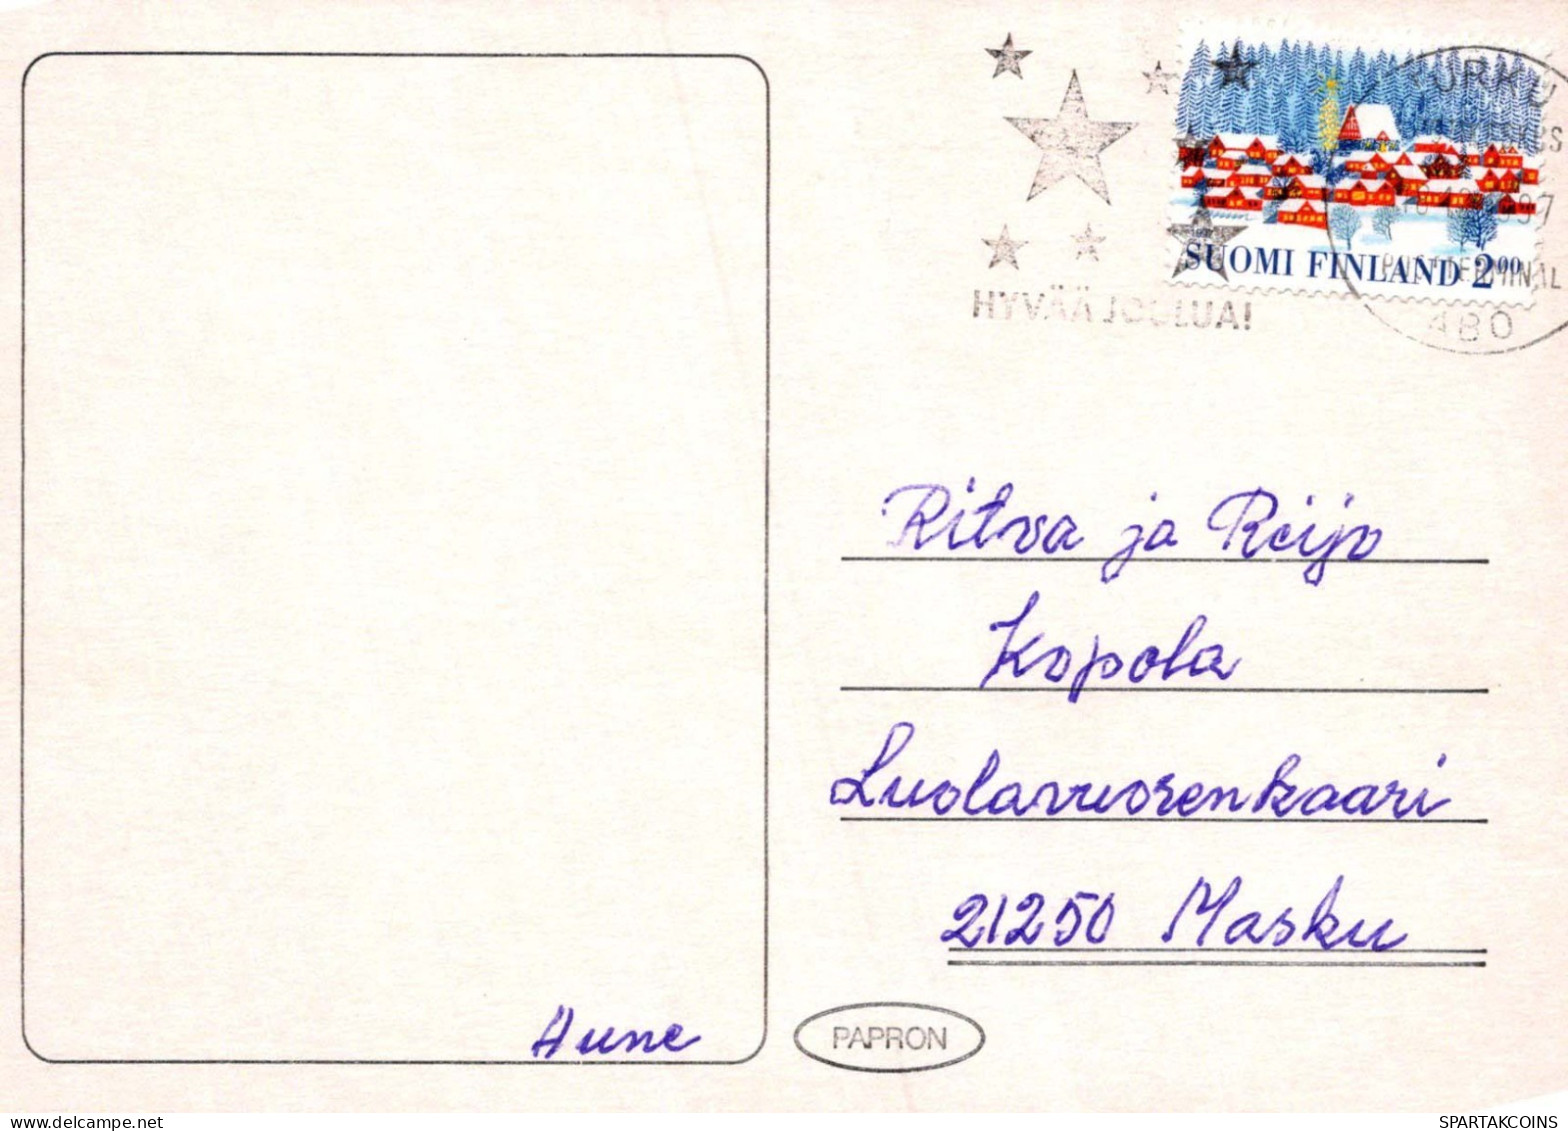 HYVÄÄ JOULUA!
SUOMI FINLAND 2.00
480
Ritva ja Reijo
Kopola
Luolavuorenkaari
21250 Masku
Aune
PAPRON
www.delcampe.net
SPARTAKCOINS